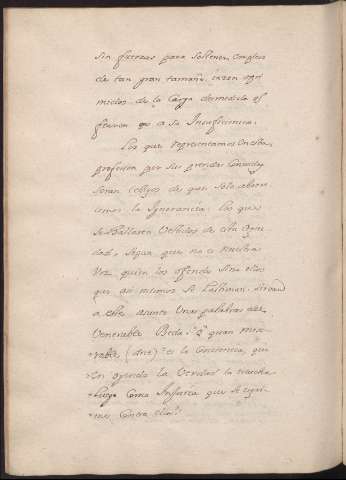 sin fuerzas para sostener empleo
de tan gran tamaño, caen opri
midos de la Carga desmedida q.e
fiaron a su Insuficiencia.
Los que representamos en esta
profesion por sus prendas Conocidas
seran testigos de que solo aborre
cemos la Ignorancia: los que
se hallaren vestidos de esta Ogne
dad, sepan que no es nuestra
Voz quien los ofende sino ellos
que asi mismos se lastiman. sirvan
a este asunto unas palabras del
Venerable Beda: quan mise
rable, (dice) es la Conciencia, que
en oyendo la Verdad la tiene
luego como Injuria que se
contra ella.